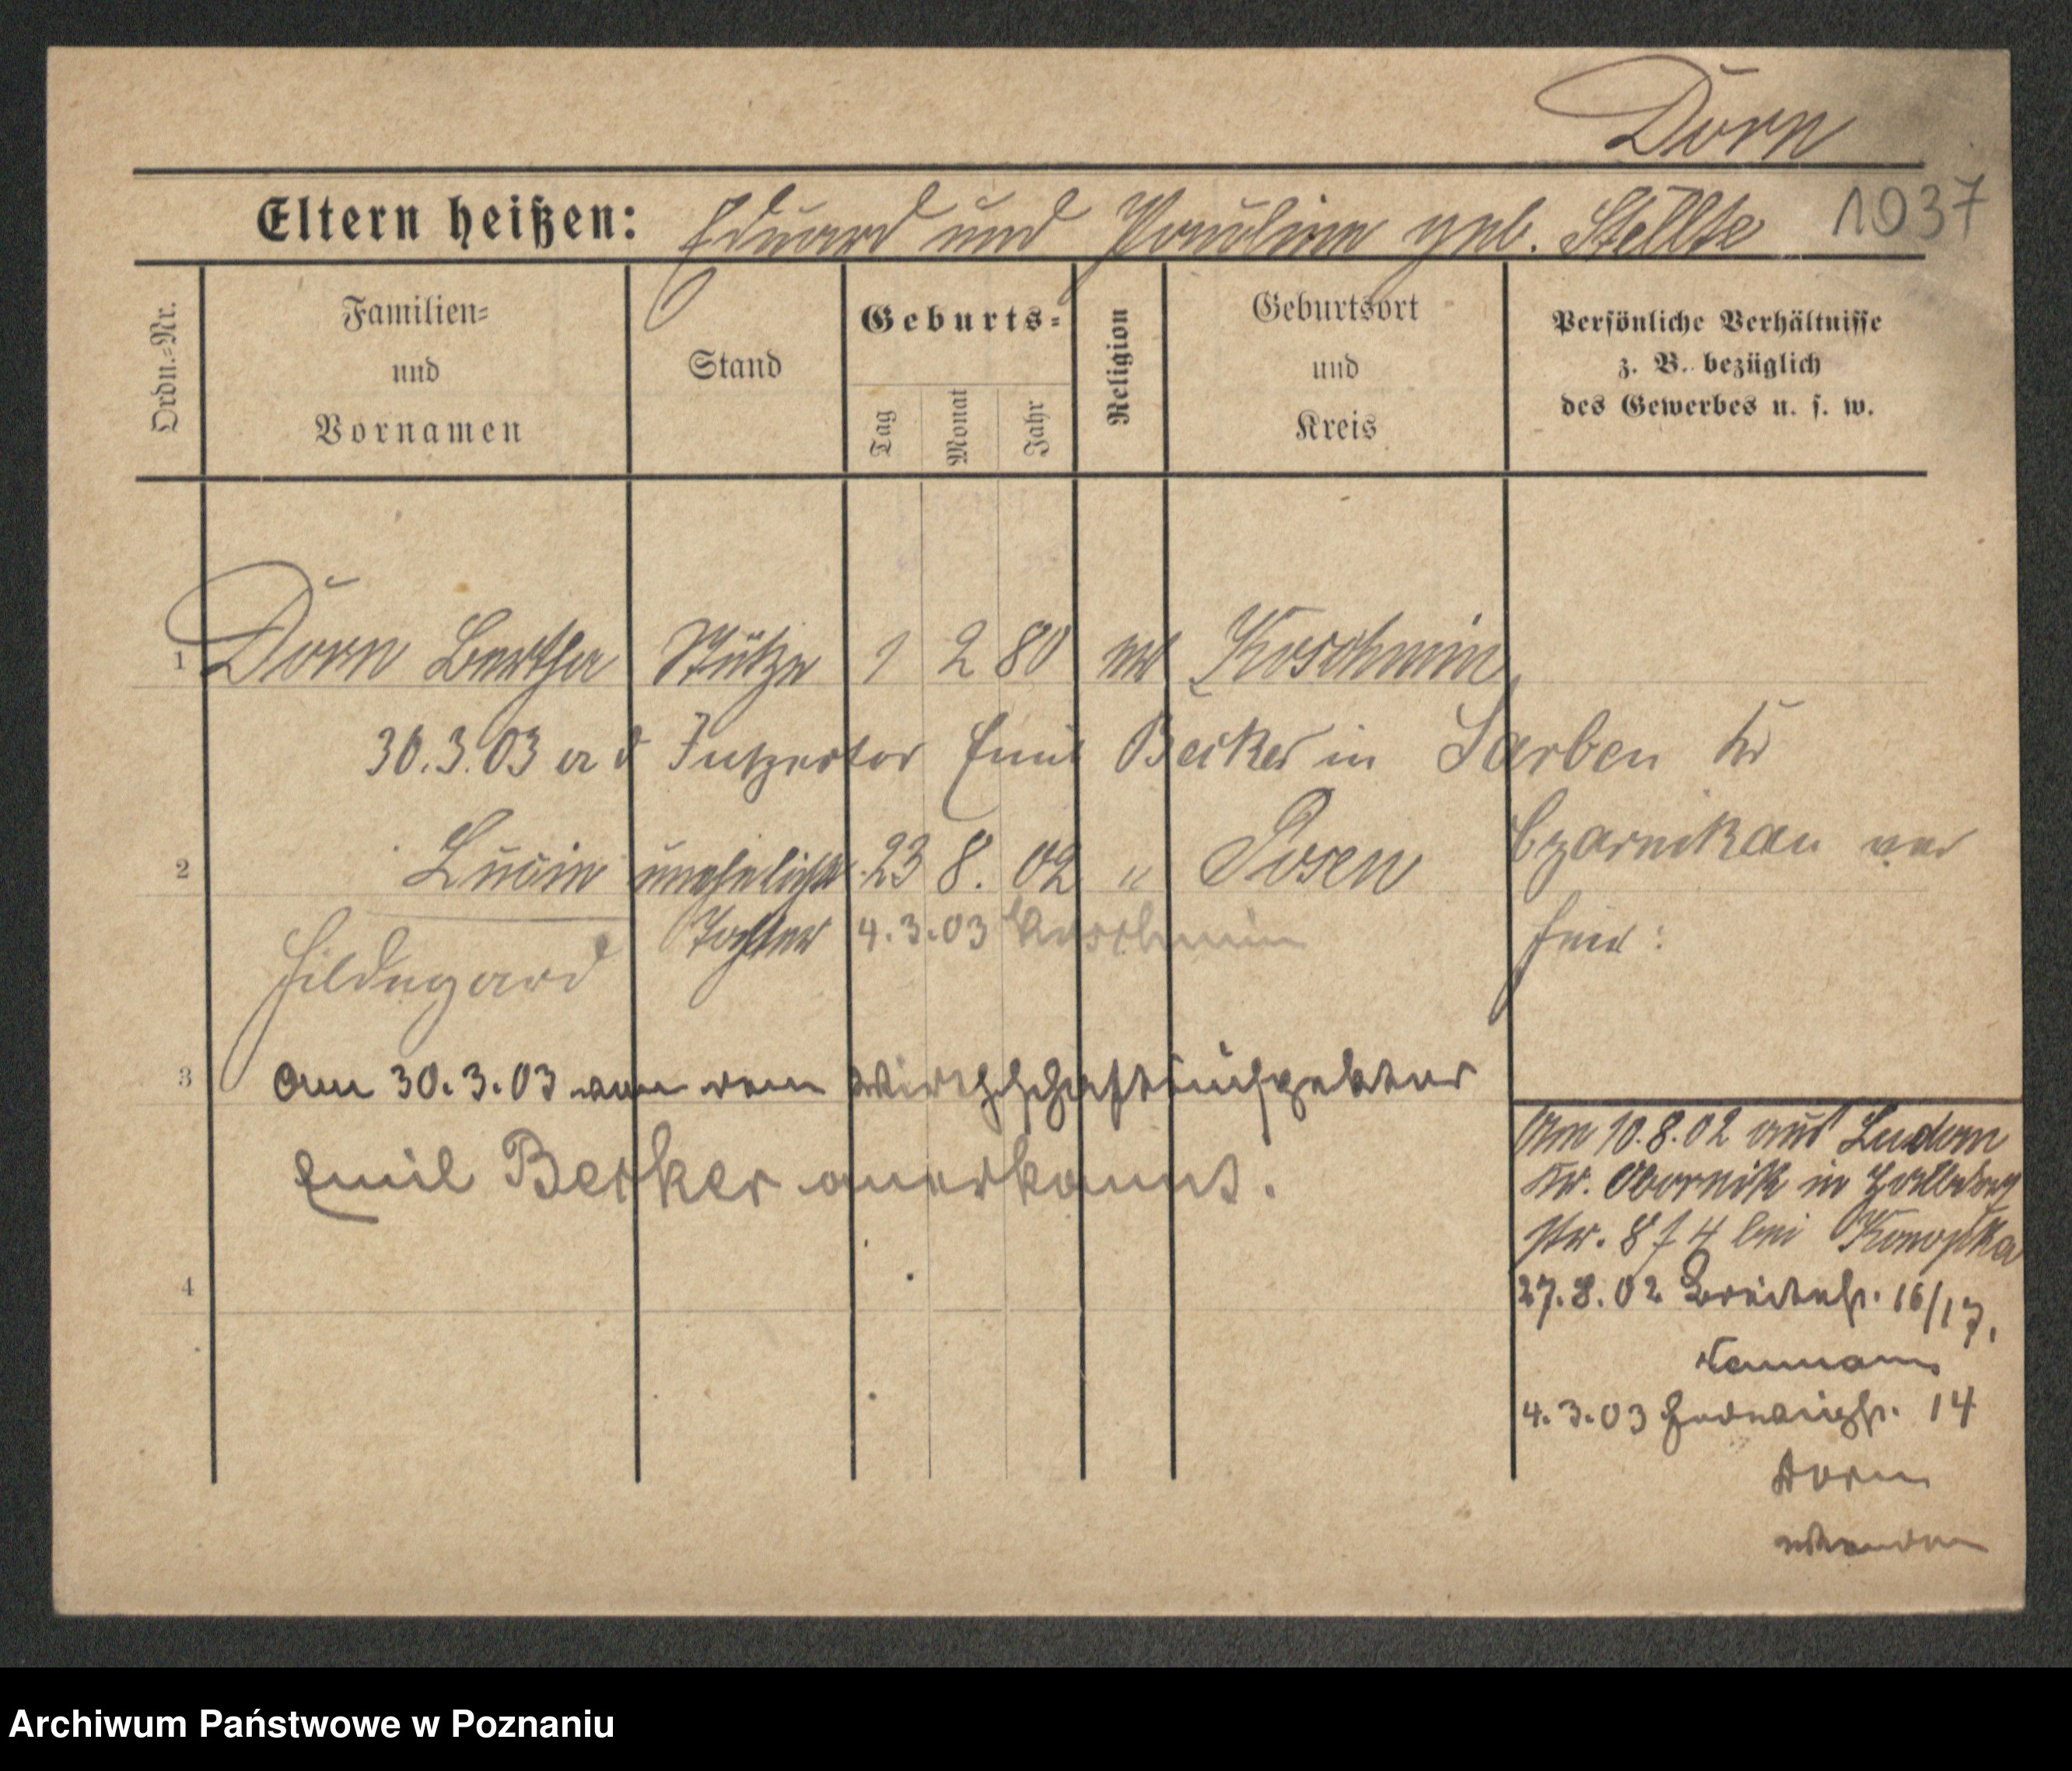 Dorn
Eltern heißen: Eduard und Pauline geb. Stellte 1037
Ordn.-Nr.
Familien-
und
Vornamen
Stand
Geburts-
Tag
Monat
Jahr
Religion
Geburtsort
und
Kreis
Persönliche Verhältnisse
z. B. bezüglich
des Gewerbes u. s. w.
1 Dorn Bertha Stütze 1 2 80 ev Koschmin
30.3.03 a d Inspector Emil Becker in Sarben Kr
Czarnikau ver
2 Lucie uneheliche 23 8. 02 " Posen
Tochter 4.3.03 Koschmin
Hildegard
3 Am 30.3.03 von dem Wirthschaftsinspektor
Emil Becker anerkannt.
4
Am 10.8.02 aus Ludom
Kr. Obornik in
str. 8 f 4 bei Konopka
27.8.02 Breitestr. 16/17.
Neumann
4.3.03 Hedwigstr. 14
Dorn
Archiwum Państwowe w Poznaniu